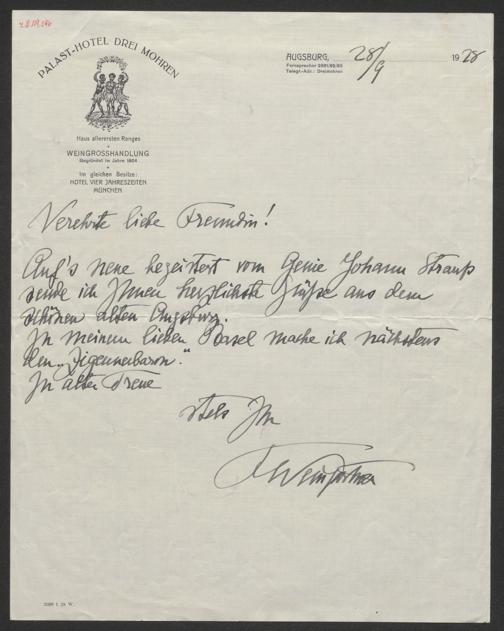 PALAST-HOTEL DREI MOHREN
Haus allerersten Ranges
WEINGROSSHANDLUNG
Gegründet im Jahre 1804
Im gleichen Besitze:
HOTEL VIER JAHRESZEITEN
MÜNCHEN
AUGSBURG, 28/9 1928
Fernsprecher
Telegr.-Adr.: Dreimohren
Verehrte liebe Freundin!
Auf's neue begeistert vom Genie Johann Strauß
sende ich Ihnen herzlichste Grüße aus dem
schönen alten Augsburg.
In meinem lieben Basel mache ich nächstens
den „Zigeunerbaron."
In alter Treue
stets Ihr
FWeingartner